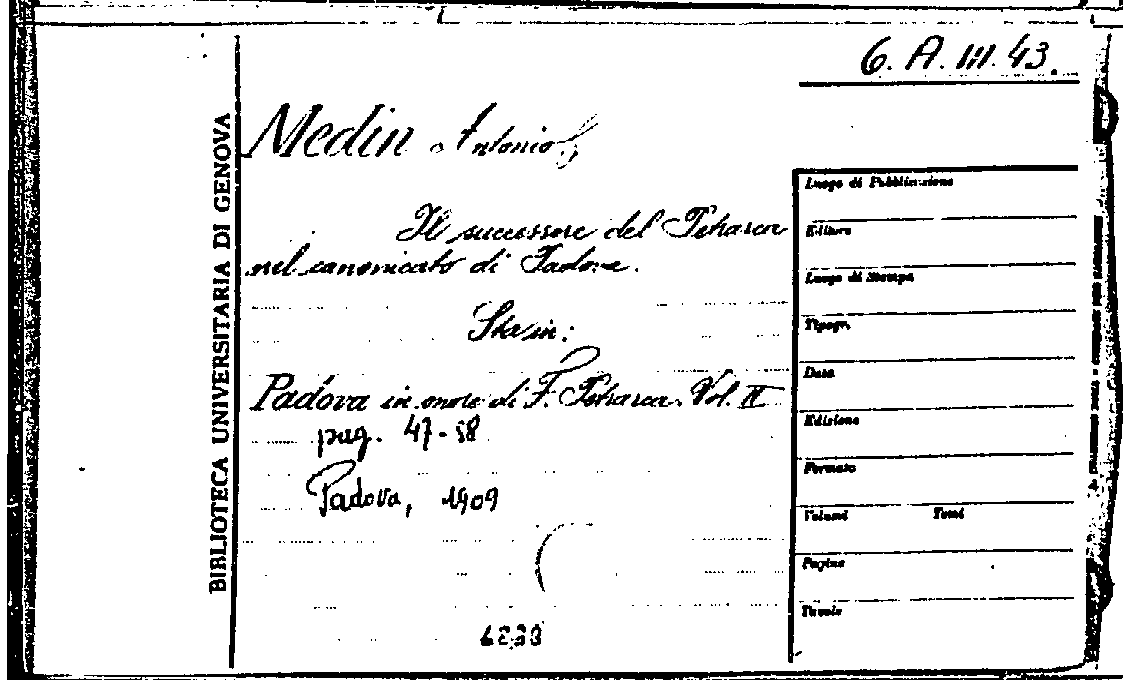 6. A. III. 43.
BIBLIOTECA UNIVERSITARIA DI GENOVA
Medin Antonio
Il successore del Petrarca
nel canonicato di Padova.
Sta in:
Padova in onore di F. Petrarca. Vol. II
pag. 47-58
Padova, 1909
Luogo di Pubblicazione
Editore
Luogo di Stampa
Tipogr.
Data
Edizione
Formato
Volumi Tomi
Pagine
Tavole